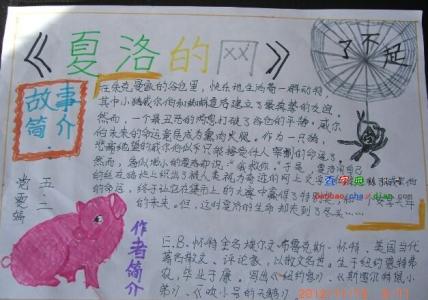 《夏洛的网》
了不起
故事
简介
在朱克曼家的谷仓里,快乐地生活着一群动物,
其中小猪威尔伯和蜘蛛夏洛建立了最真挚的友谊。
然而,一个最丑恶的消息打破了谷仓的平静:威尔
伯未来的命运竟是成为熏肉火腿。作为一只猪,
悲痛绝望的威尔伯似乎只能接受任人宰割的命运了,
然而,看似渺小的夏洛却说:“我救你。”于是,夏洛用自己
的丝在猪栏上织出了被人类视为奇迹的网上文字
的命运,终于让它在集市上的大赛中赢得了特别奖
的未来。但,这时夏洛的生命却走到了尽头……
五二
作者简介
E.B.怀特全名埃尔文·布鲁克斯·怀特,美国当代
著名散文、评论家,以散文名世,生于纽约蒙特弗
农,毕业于康
《纽约客》、《斯图尔特鼠小
弟》、《吹小号的天鹅》